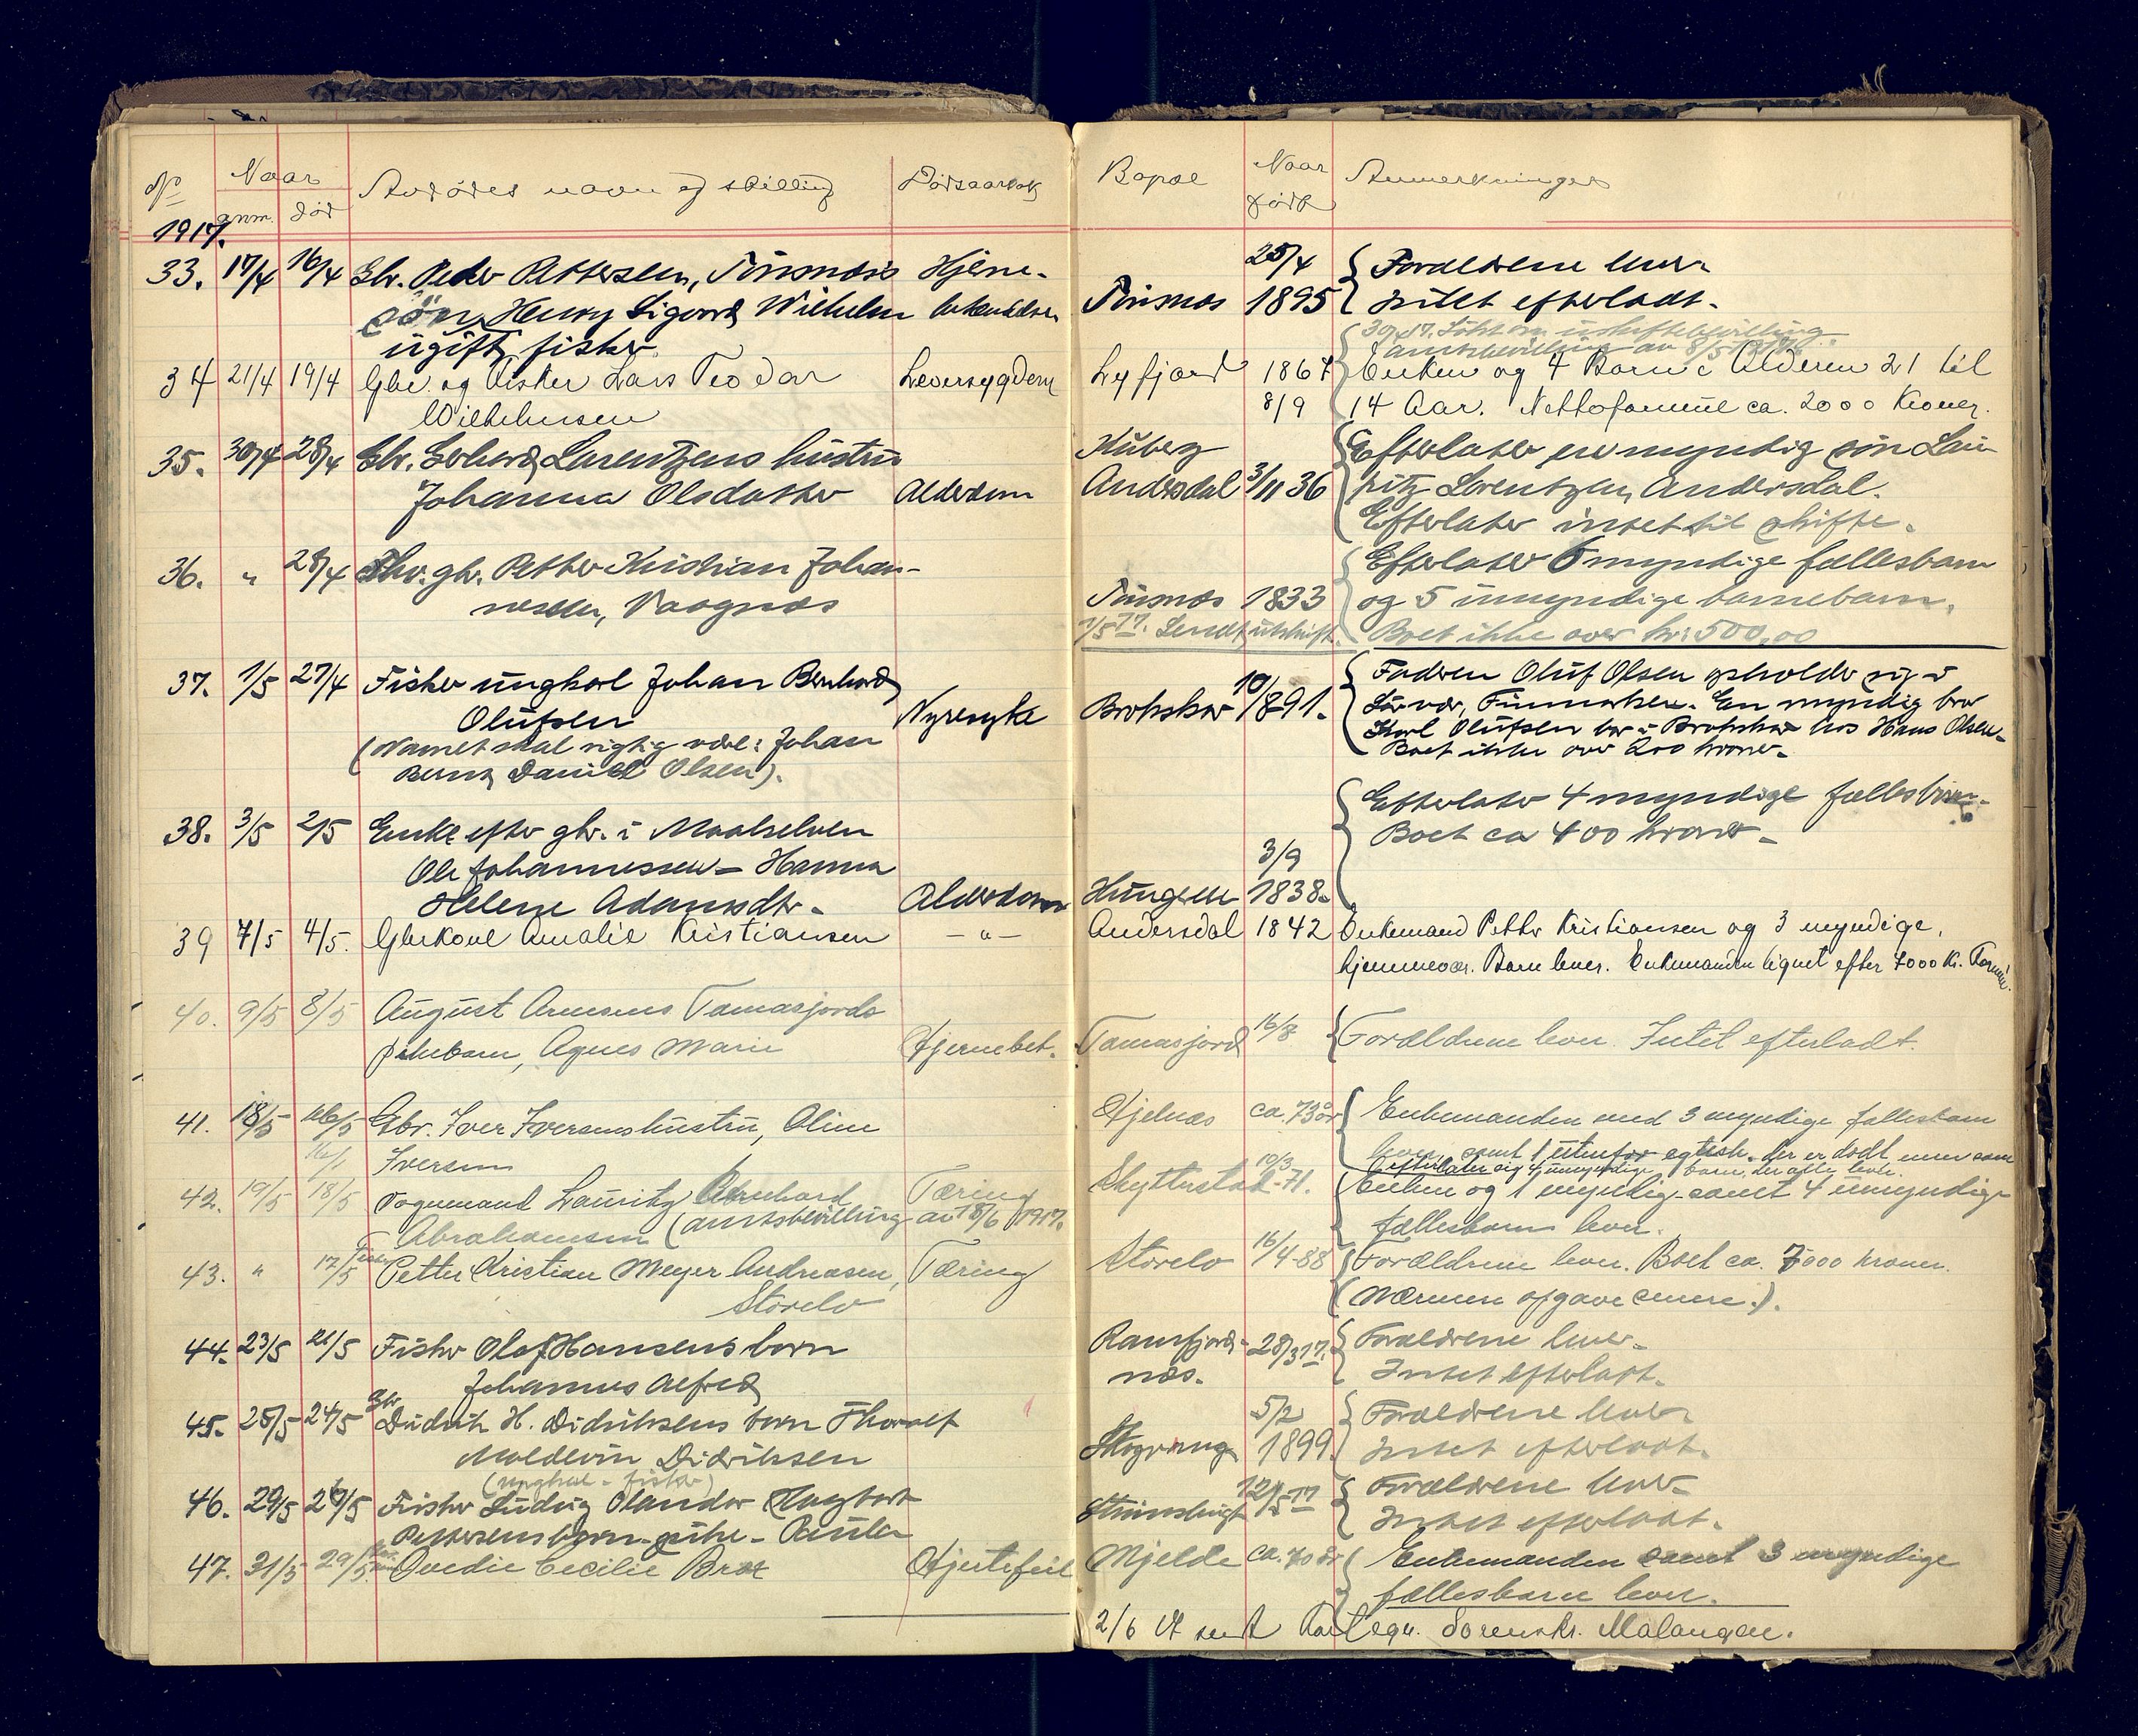 No Naar Avdødes navn og stilling Dødsaarsak Bopæl Naar Anmerkninger
1917. anm. død født
33. 17/4 16/4 Gbr. Peder Pettersen, Tusnæs Hjerne- 25/4 Forældrene lever
søn, Henry Sigvard Wilhelm betændelse Tusnæs 1895 Intet efterladt.
ugift, fisker.
34 21/4 19/4 Gbr. og Fisker Lars Teodor Leversygdom Lyfjord 1867 Enken og 4 Barn i Alderen 21 til
Wilhelmsen 8/9 14 Aar. Nettoformue ca. 2000 Kroner.
35. 30/4 28/4 Gbr. Gerhard Lorentzens hustru Efterlater en myndig søn Lau-
Johanna Olsdatter Alderdom Andersdal 3/11 36 ritz Lorentzen, Andersdal.
Efterlater intet til skifte.
36. " 28/4 gbr. Petter Kristian Johan- Efterlater 6 myndige fællesbarn
nessen, Vaagnæs Tusnæs 1833 og 5 umyndige barnebarn.
1/5 17. Sendt utskrift. Boet ikke over kr: 500,00
37. 1/5 27/4 Fisker ungkarl Johan Bernhard 10/ Faderen Oluf Olsen opholder sig i
Olufsen Nyresyke Brokskar 1891. Finmarken. En myndig bror
(Navnet skal rigtig være: Johan Karl Olufsen bor i Brokskar hos Hans Olsen.
Bernh. Daniel Olsen). Boet ikke over 200 kroner.
38. 3/5 2/5 Enke efter gbr. i Maalselven Efterlater 4 myndige fællesbarn.
Ole Johannessen - Hanna 3/9 Boet ca 400 kroner.
Helene Adamsdtr. Alderdom Hungeren 1838.
39 7/5 4/5. Gbrkone Amalie Kristiansen - " - Andersdal 1842 Enkemand Petter Kristiansen og 3 myndige,
hjemmevær. Barn lever. Enkemanden lignet efter 7000 Kr. Formue.
40. 9/5 8/5 August Arnesens Tamasjords
pikebarn, Agnes Marie Hjernebet. Tamasjord 16/8 Forældrene lever. Intet efterladt.
41. 18/5 16/5 Gbr. Iver Iversens hustru, Oline Hjelnæs ca. 73 år Enkemanden med 3 myndige fællesbarn
Iversen lever, samt 1 utenfor egtesk. der er dødt men som
efterlater sig 4 umyndige barn, der alle lever.
42. 19/5 18/5 Vognmand Lauritz Bernhard Tæring 10/3 -71. Enken og 1 myndig samt 4 umyndige
Abrahamsen (Amtsbevilling av 18/6 1917. fællesbarn lever.
43. " 17/5 Petter Kristian Meyer Andreasen, Tæring Storelv 16/4-88 Forældrene lever. Boet ca. 7000 kroner.
Storelv (Nærmere opgave senere.).
44. 23/5 21/5 Fisker Olaf Hansens barn Ramfjord- 28/3 17. Forældrene lever.
Johannes Alfred næs. Intet efterladt.
45. 25/5 24/5 gbr. Didrik H. Didriksens barn Thoralf 5/2 Forældrene lever
Moldevin Didriksen Skogvang 1899. Intet efterladt.
(ungkar - fisker)
46. 29/5 26/5 Fisker Ludvig Olander Hagbart 12/5 17 Forældrene lever
Pettersens barn - pike - Paula Intet efterladt.
47. 31/5 29/5 Ovedie Cecilie Brox Hjertefeil Mjelde ca. 70 år Enkemanden samt 3 myndige
fællesbarn lever.
2/6 17 sendt Sorenskr. Malangen.